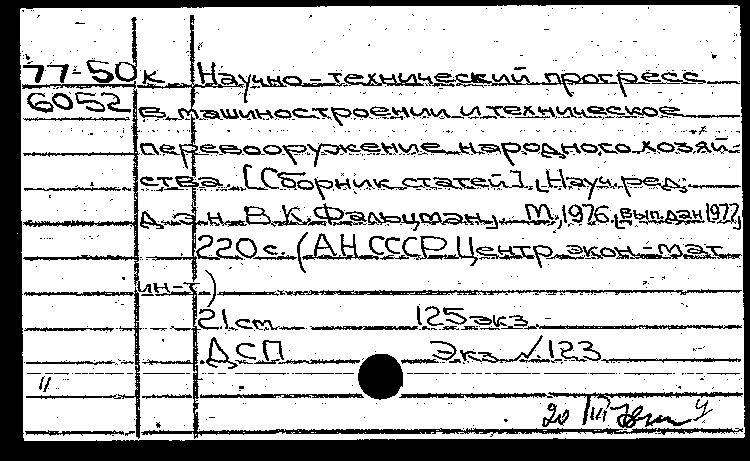 77-50к Научно-технический прогресс
6052 в машиностроении и техническое
перевооружение народного хозяй-
ства. [Сборник статей]. Науч. ред.
д. э. н. В. К. Фальцман. М., 1976, вып. дан 1977,
220 с. (АН СССР Центр. экон.-мат.
ин-т)
21 см 125 экз.
ДСП Экз № 123
11
20 III